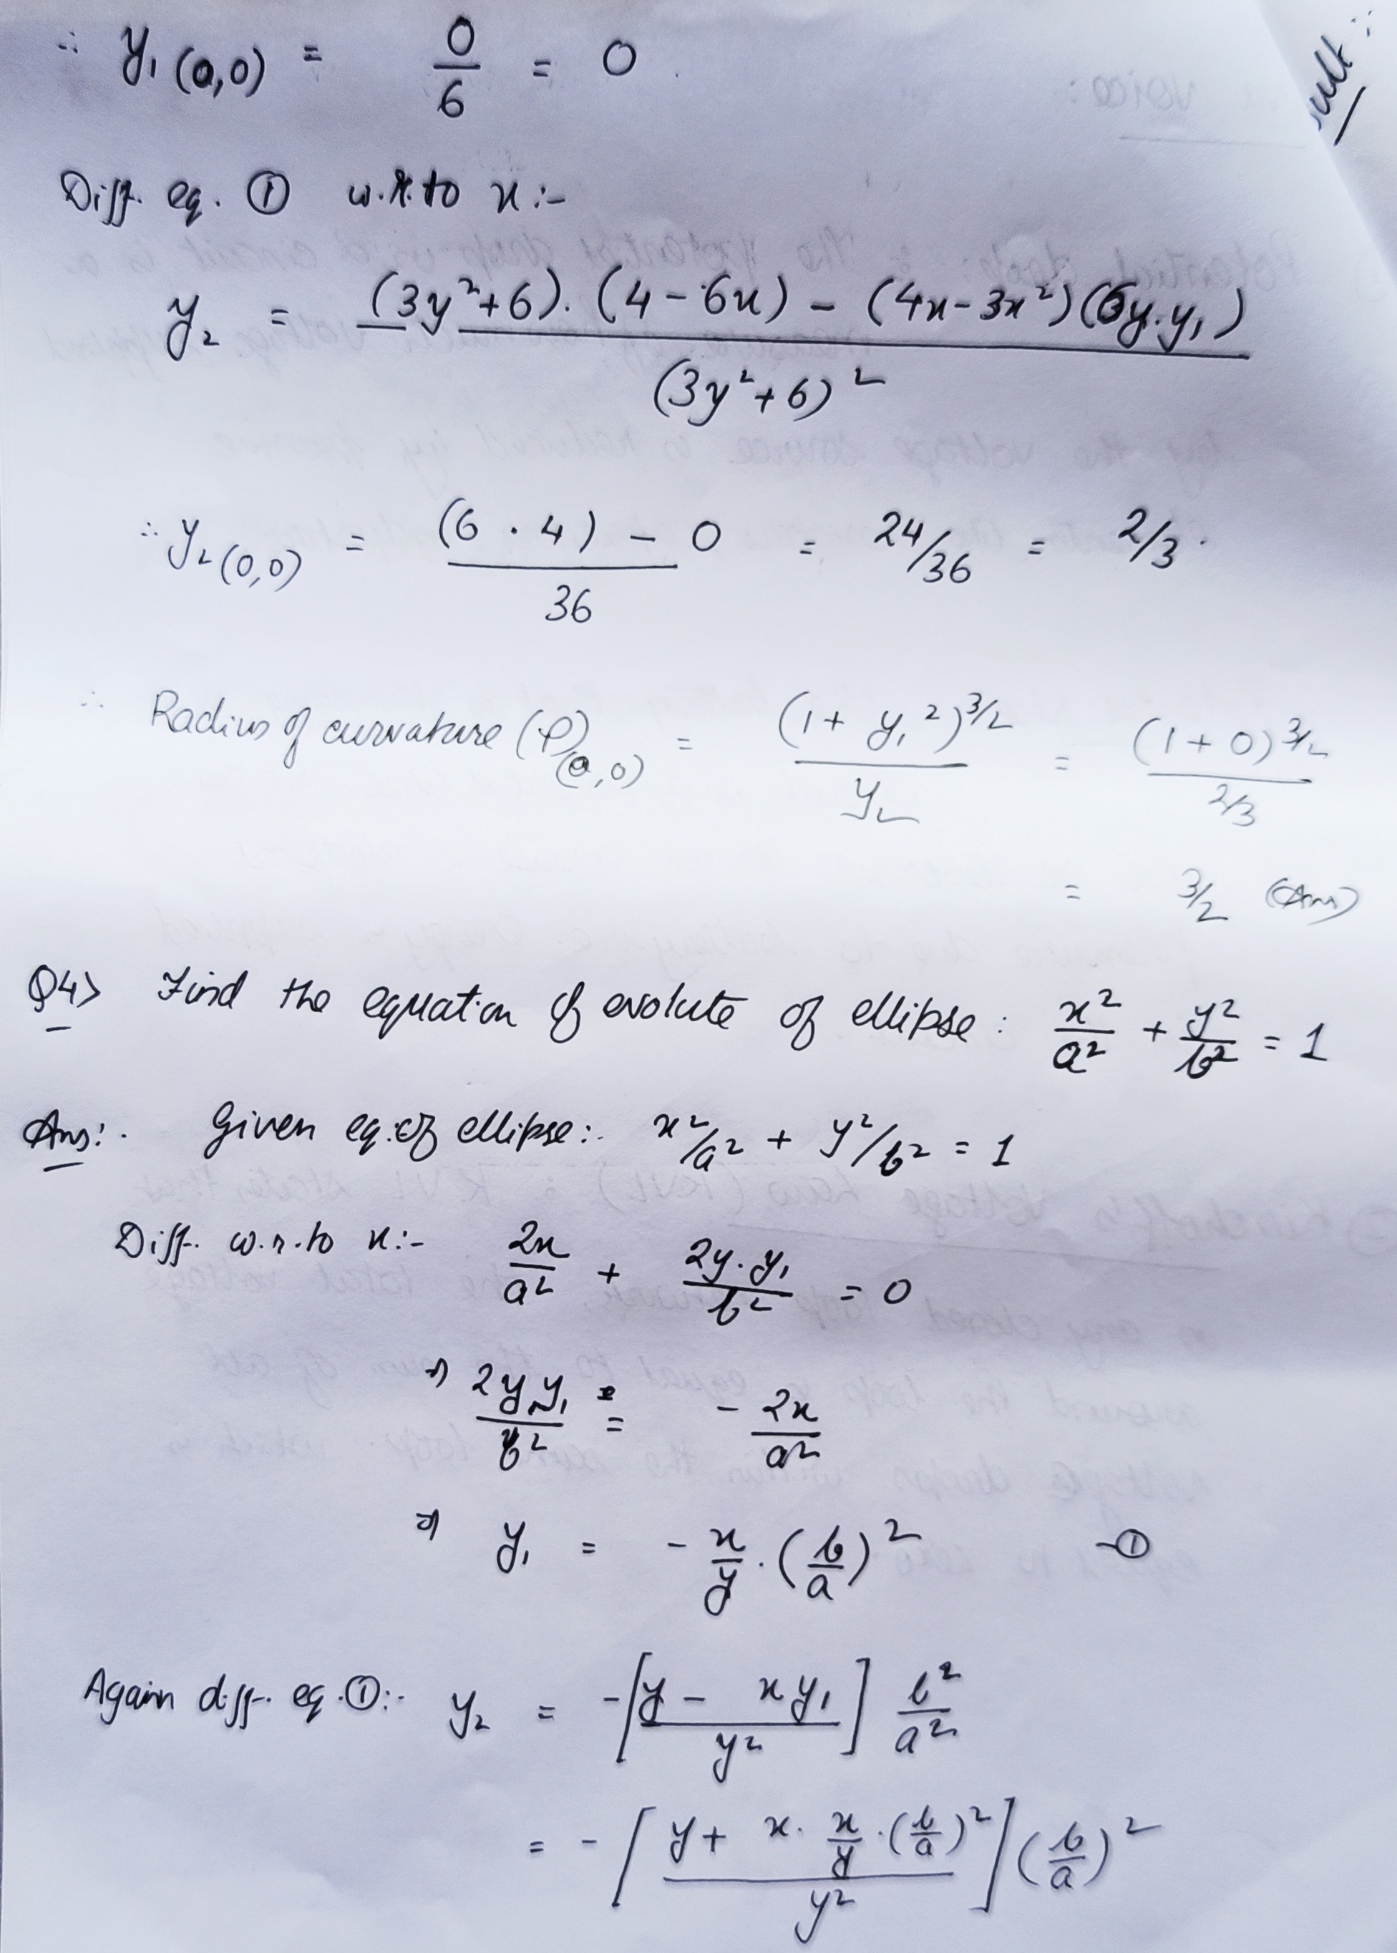 ∴ y₁(0,0) = 0/6 = 0.
ult :
Diff. eq. ① w.r.to x :-
y₂ = (3y²+6).(4-6x) - (4x-3x²)(6y.y₁) / (3y²+6)²
∴ y₂(0,0) = (6 . 4) - 0 / 36 = 24/36 = 2/3.
∴ Radius of curvature (ρ)(0,0) = (1+ y₁²)^3/2 / y₂ = (1+0)^3/2 / 2/3
= 3/2 (Ans)
Q4> Find the equation of evolute of ellipse : x²/a² + y²/b² = 1
Ans:. Given eq. of ellipse :. x²/a² + y²/b² = 1
Diff. w.r.to x :- 2x/a² + 2y.y₁/b² = 0
⇒ 2yy₁/b² = - 2x/a²
⇒ y₁ = - x/y . (b/a)² -①
Again diff. eq.① :. y₂ = -[y - xy₁ / y²] b²/a²
= - [y + x . x/y . (b/a)² / y²] (b/a)²